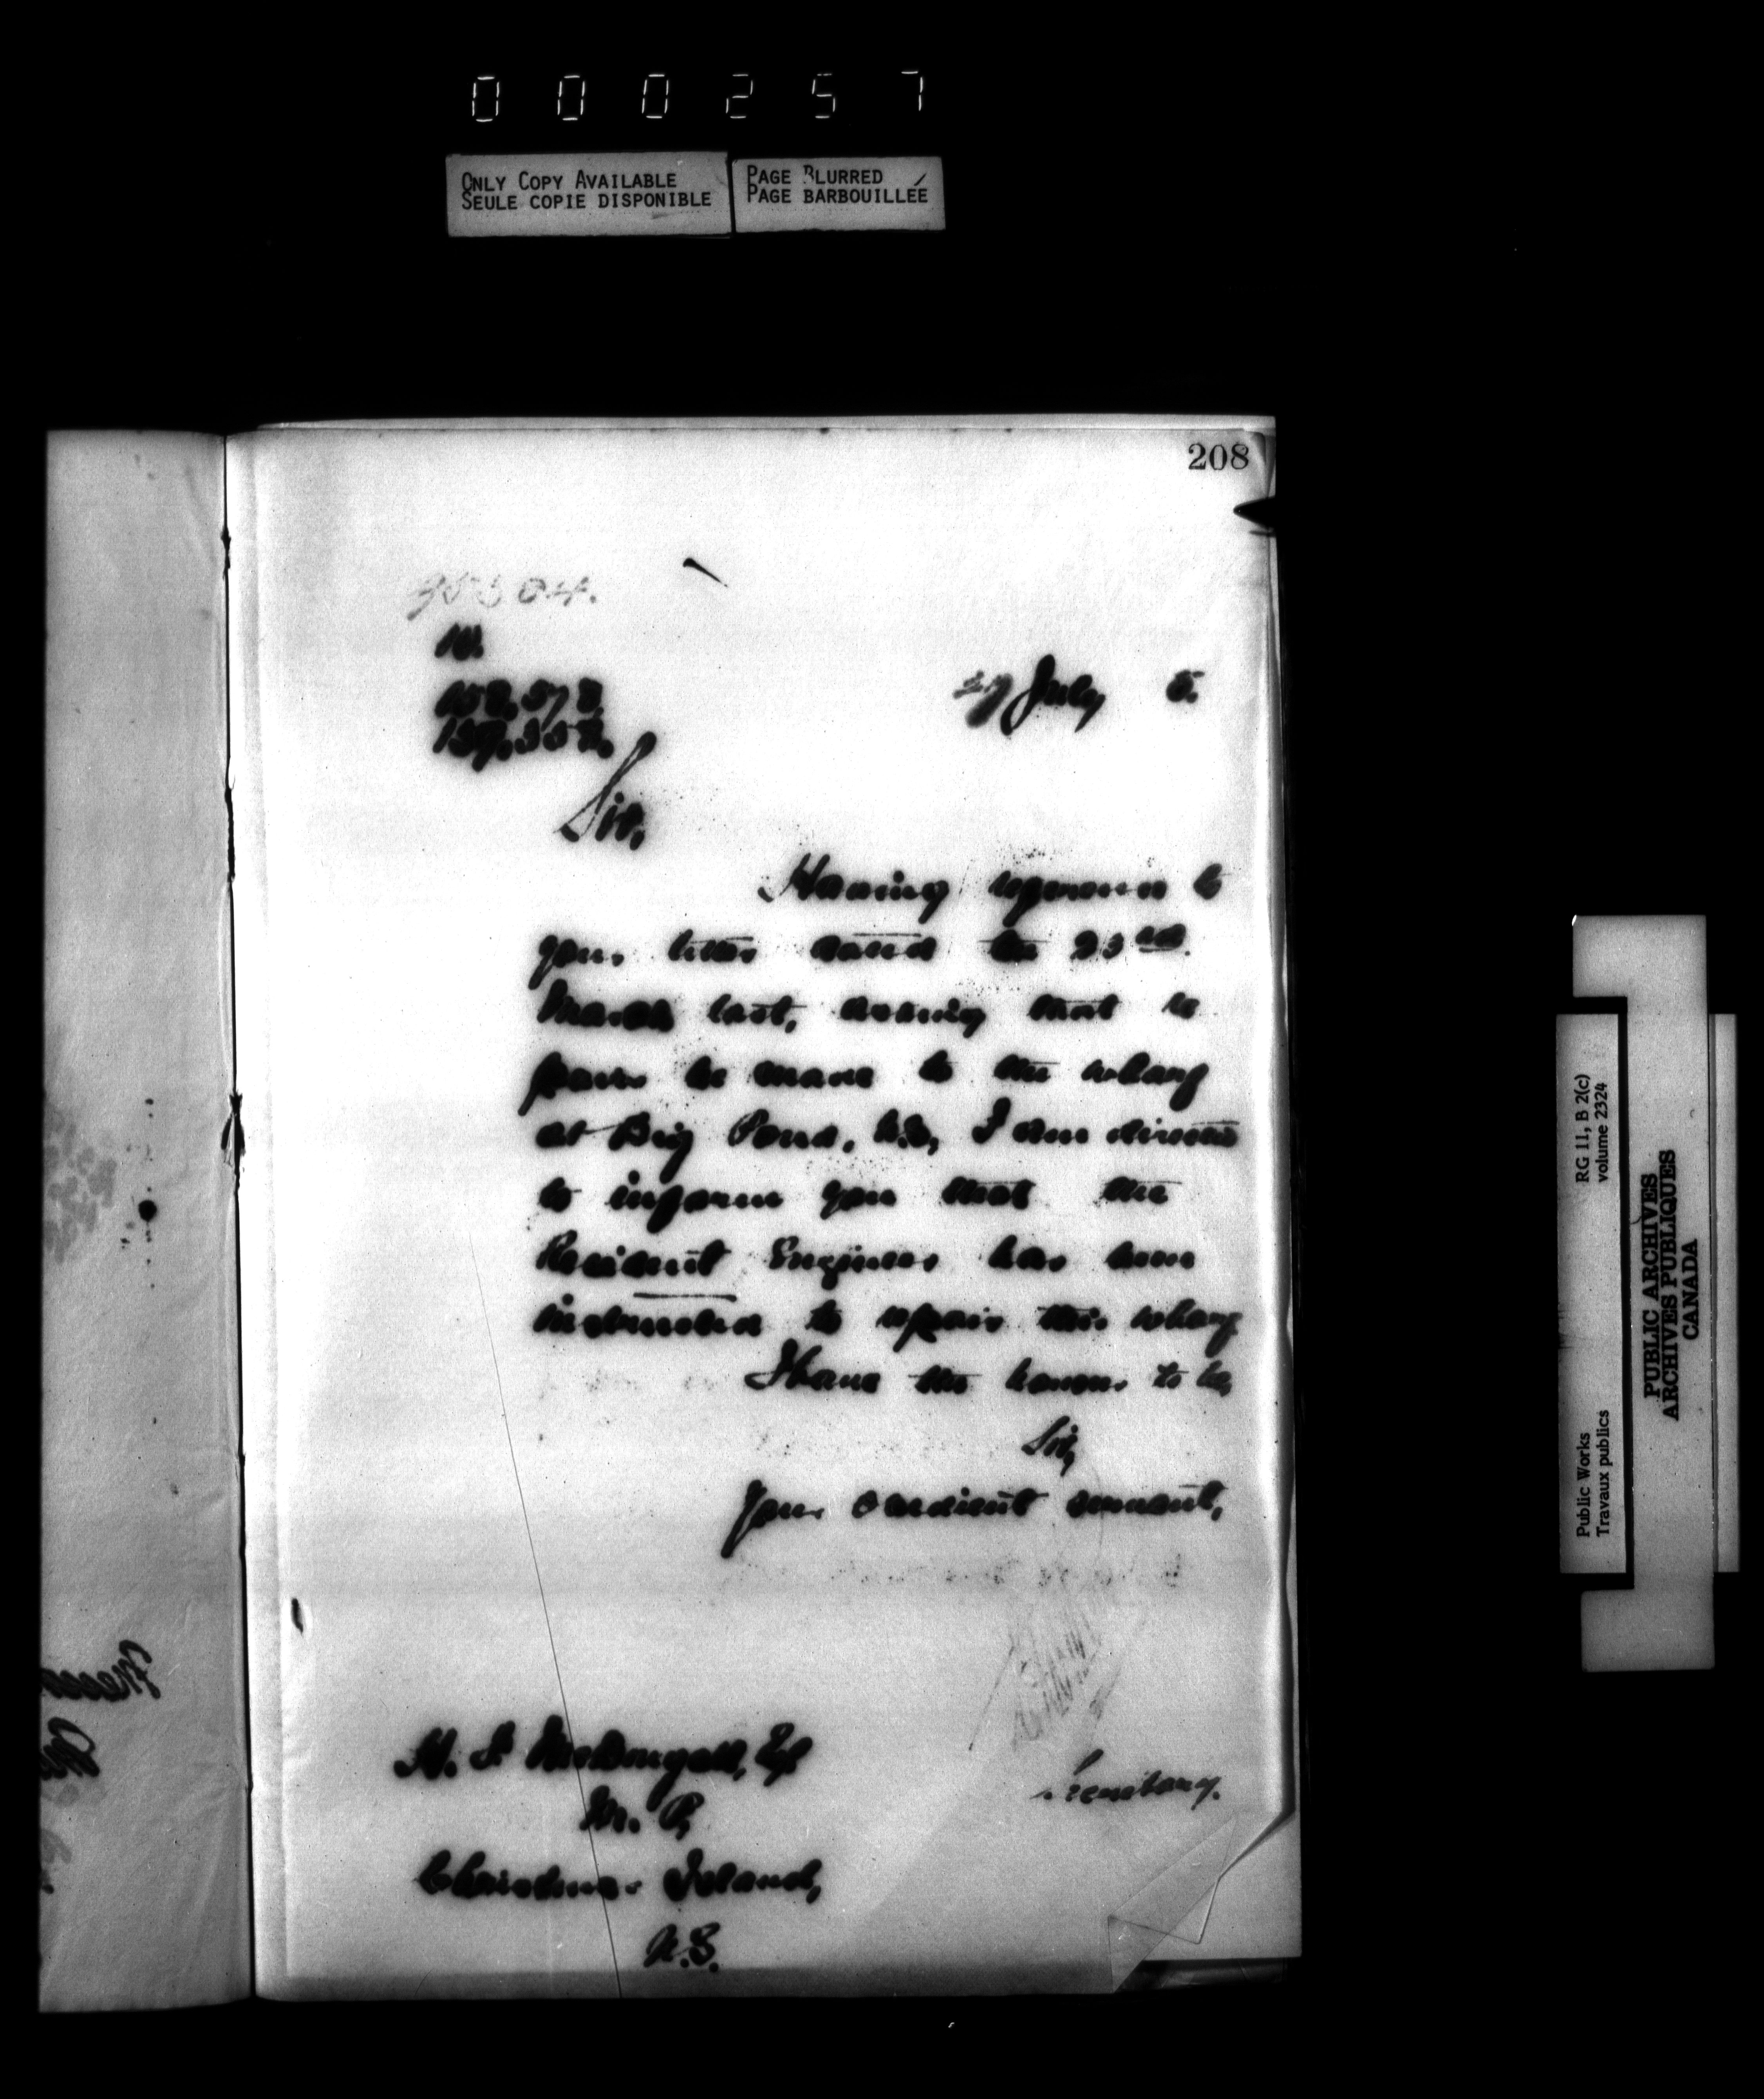 000257
ONLY COPY AVAILABLE
SEULE COPIE DISPONIBLE
PAGE BLURRED
PAGE BARBOUILLÉE
208
W.
27 July 5.
Sir,
Having reference to
your letter dated the 23rd.
March last, asking that re
pairs be made to the wharf
at Big Pond, C.B., I am directed
to inform you that the
Resident Engineer has been
instructed to repair this wharf
I have the honour to be,
Sir,
Your obedient servant,
Secretary.
H. F. McDougall, Esq
M. P.,
Christmas Island,
N.S.
Public Works
Travaux publics
RG 11, B 2(c)
volume 2324
PUBLIC ARCHIVES
ARCHIVES PUBLIQUES
CANADA